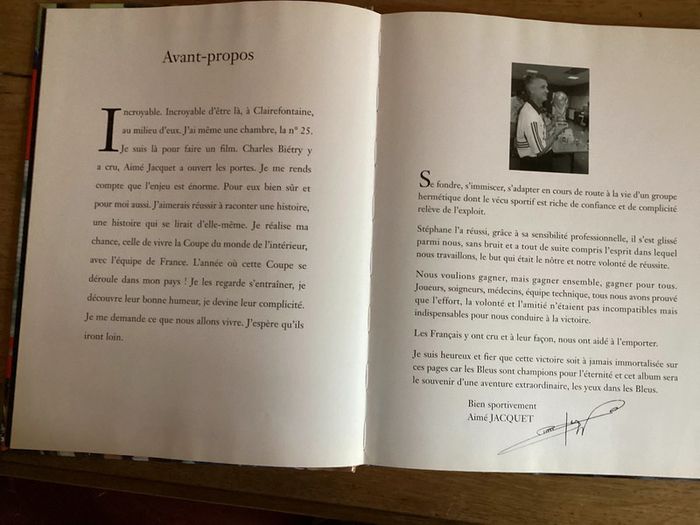 Avant-propos
Incroyable. Incroyable d'être là, à Clairefontaine,
au milieu d'eux. J'ai même une chambre, la n° 25.
Je suis là pour faire un film. Charles Biétry y
a cru, Aimé Jacquet a ouvert les portes. Je me rends
compte que l'enjeu est énorme. Pour eux bien sûr et
pour moi aussi. J'aimerais réussir à raconter une histoire,
une histoire qui se lirait d'elle-même. Je réalise ma
chance, celle de vivre la Coupe du monde de l'intérieur,
avec l'équipe de France. L'année où cette Coupe se
déroule dans mon pays ! Je les regarde s'entraîner, je
découvre leur bonne humeur, je devine leur complicité.
Je me demande ce que nous allons vivre. J'espère qu'ils
iront loin.
Se fondre, s'immiscer, s'adapter en cours de route à la vie d'un groupe
hermétique dont le vécu sportif est riche de confiance et de complicité
relève de l'exploit.
Stéphane l'a réussi, grâce à sa sensibilité professionnelle, il s'est glissé
parmi nous, sans bruit et a tout de suite compris l'esprit dans lequel
nous travaillons, le but qui était le nôtre et notre volonté de réussite.
Nous voulions gagner, mais gagner ensemble, gagner pour tous.
Joueurs, soigneurs, médecins, équipe technique, tous nous avons prouvé
que l'effort, la volonté et l'amitié n'étaient pas incompatibles mais
indispensables pour nous conduire à la victoire.
Les Français y ont cru et à leur façon, nous ont aidé à l'emporter.
Je suis heureux et fier que cette victoire soit à jamais immortalisée sur
ces pages car les Bleus sont champions pour l'éternité et cet album sera
le souvenir d'une aventure extraordinaire, les yeux dans les Bleus.
Bien sportivement
Aimé JACQUET